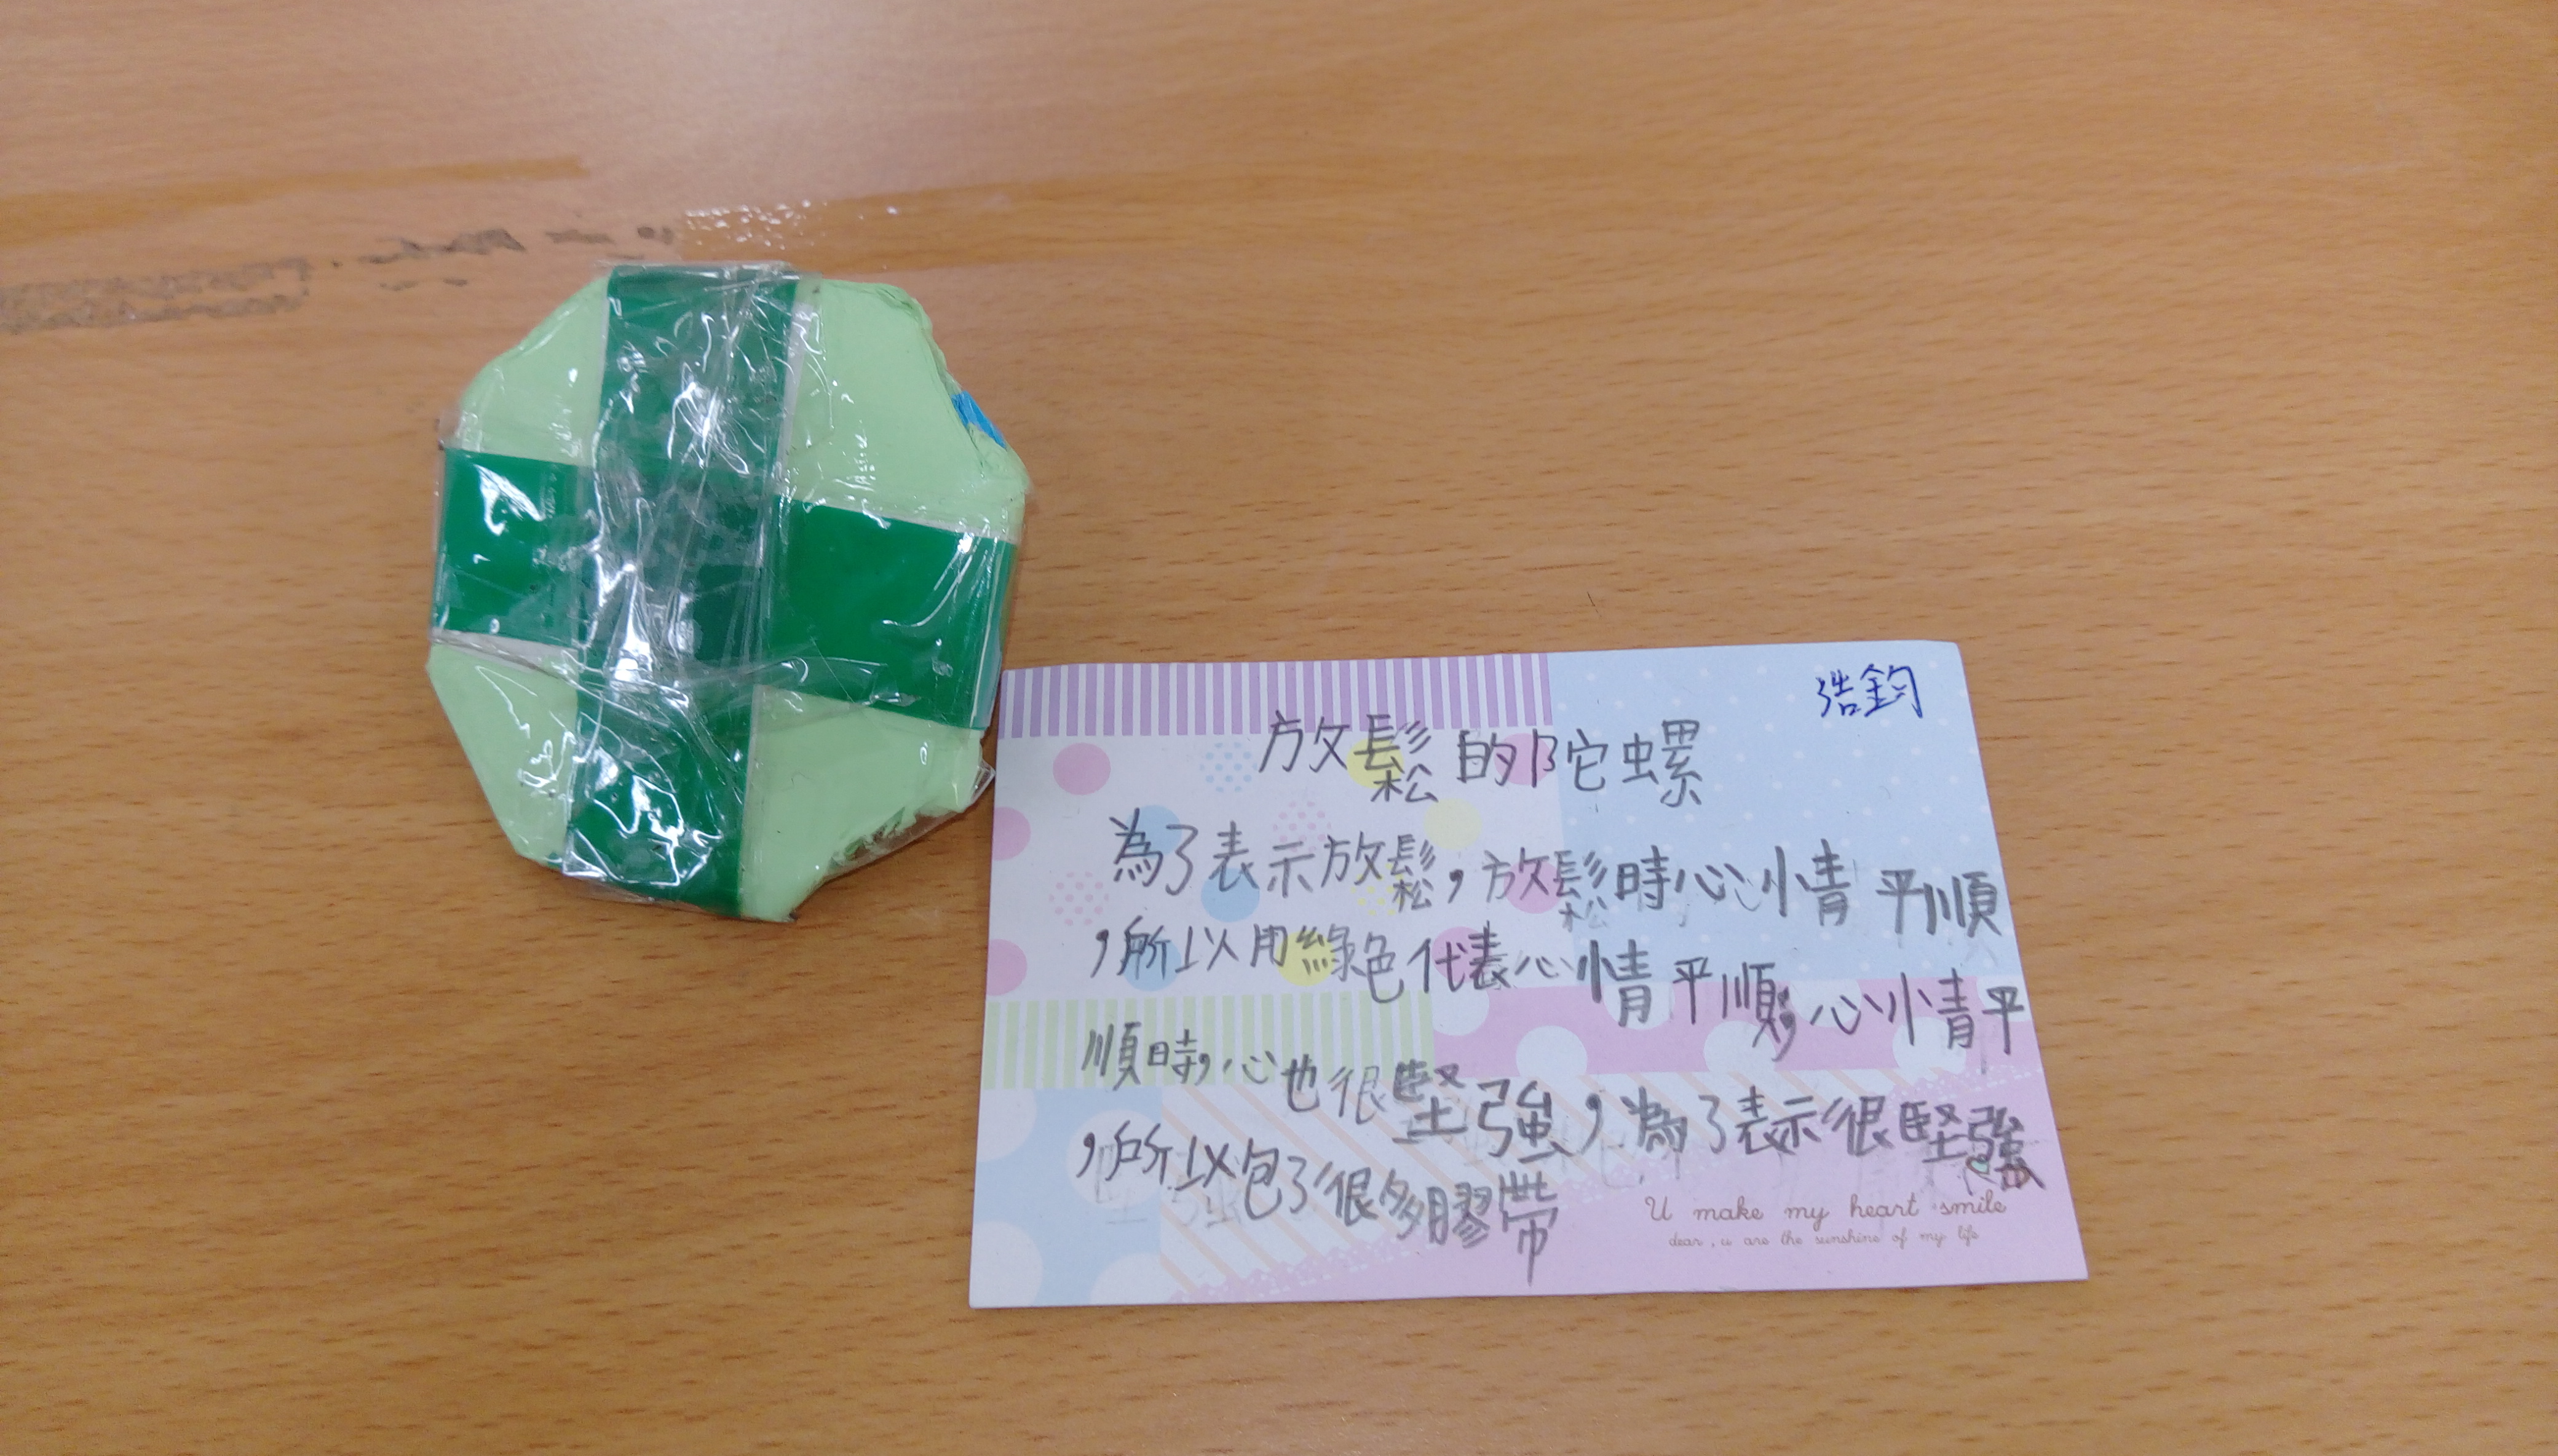 浩鈞
放鬆的陀螺
為了表示放鬆，放鬆時心情平順
，所以用綠色代表心情平順，心情平
順時，心也很堅強，為了表示很堅強
，所以包了很多膠帶
U make my heart smile
dear, u are the sunshine of my life